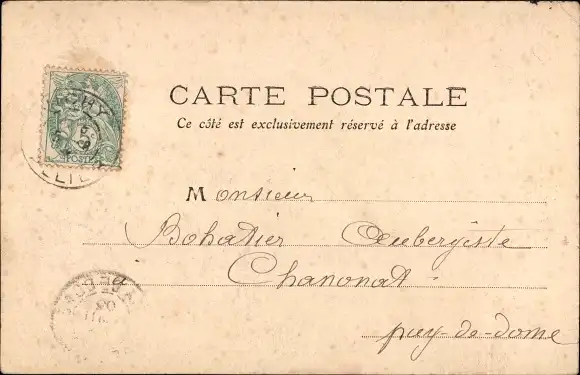 CARTE POSTALE
Ce côté est exclusivement réservé à l'adresse
Monsieur
Bohatier Aubergiste
Chanonat
puy-de-dome